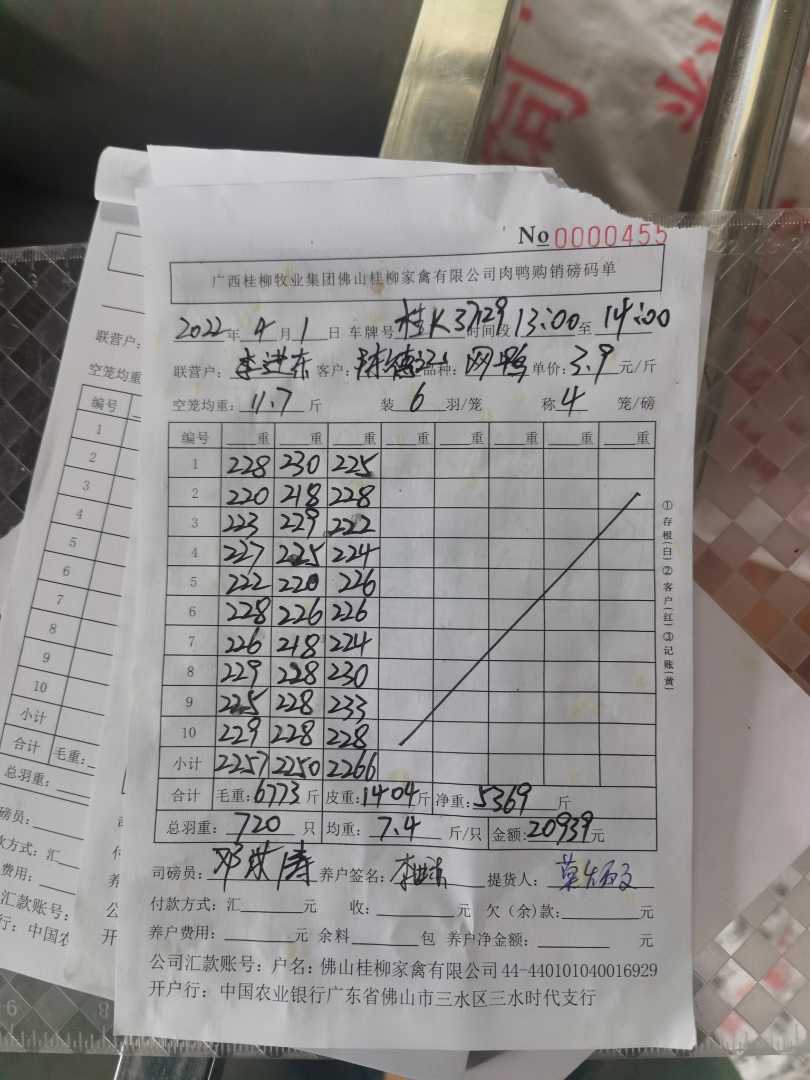 No 0000455
广西桂柳牧业集团佛山桂柳家禽有限公司肉鸭购销磅码单
2022年4月1日 车牌号桂K37129时间段13:00至14:00
联营户：李进东 客户：品种：网鸭 单价：3.9元/斤
空笼均重：11.7斤 装6羽/笼 称4笼/磅
编号 重 重 重 重 重 重 重 重
1 228 230 225
2 220 218 228
3 223 229 222
4 227 225 224
5 222 220 226
6 228 226 226
7 226 218 224
8 229 228 230
9 225 228 233
10 229 228 228
小计 2257 2250 2266
合计 毛重：6773斤 皮重：1404斤 净重：5369斤
总羽重：720只 均重：7.4斤/只 金额：20939元
司磅员：邓 涛 养户签名：李 提货人：莫
付款方式：汇 元 收： 元 欠（余）款： 元
养户费用： 元 余料 包 养户净金额： 元
公司汇款账号：户名：佛山桂柳家禽有限公司44-440101040016929
开户行：中国农业银行广东省佛山市三水区三水时代支行
①存根(白)②客户(红)③记账(黄)
联营户：
空笼均重
编号
1
2
3
4
5
6
7
8
9
10
小计
合计 毛重：
总羽重：
磅员：
款方式：汇
费用：
汇款账号：
行：中国农